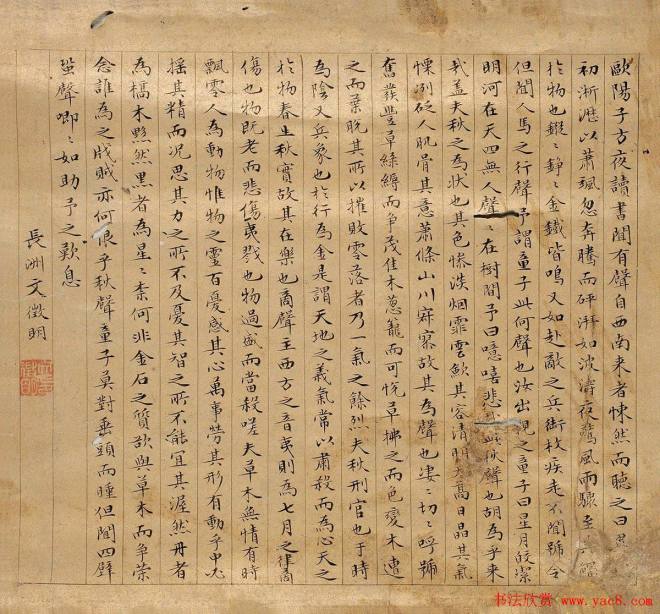 歐陽子方夜讀書聞有聲自西南来者悚然而聽之曰
初淅瀝以蕭颯忽奔騰而砰湃如波濤夜驚風雨驟至其觸
於物也鏦〻錚〻金鐵皆鳴又如赴敵之兵銜枚疾走不聞號令
但聞人馬之行聲予謂童子此何聲也汝出視之童子曰星月皎潔
明河在天四無人聲〻在樹間予曰噫嘻悲哉此秋聲也胡為乎来
哉盖夫秋之為狀也其色慘淡烟霏雲歛其容清明天高日晶其氣
慄冽砭人肌骨其意蕭條山川寂寥故其為聲也凄〻切〻呼號
奮發豐草緑縟而争茂佳木葱籠而可悅草拂之而色變木遭
之而葉脫其所以摧敗零落者乃一氣之餘烈夫秋刑官也于時
為陰又兵象也於行為金是謂天地之義氣常以肅殺而為心天之
於物春生秋實故其在樂也商聲主西方之音夷則為七月之律商
傷也物既老而悲傷夷戮也物過盛而當殺嗟夫草木無情有時
飄零人為動物惟物之靈百憂感其心萬事勞其形有動乎中必
摇其精而况思其力之所不及憂其智之所不能宜其渥然丹者
為槁木黟然黑者為星〻柰何非金石之質欲與草木而争榮
念誰為之戕賊亦何恨乎秋聲童子莫對垂頭而睡但聞四壁
蛩聲唧〻如助予之歎息
長洲文徵明
书法欣赏
www.yac8.com